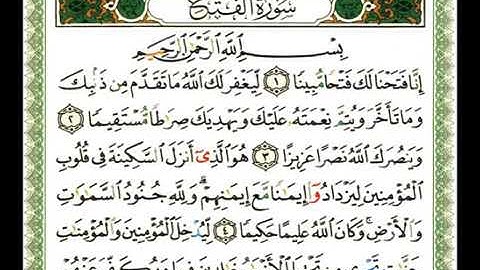 سُورَةُ الفَتْحِ
بِسْمِ اللَّهِ الرَّحْمَٰنِ الرَّحِيمِ
إِنَّا فَتَحْنَا لَكَ فَتْحًا مُبِينًا ١ لِيَغْفِرَ لَكَ اللَّهُ مَا تَقَدَّمَ مِن ذَنبِكَ
وَمَا تَأَخَّرَ وَيُتِمَّ نِعْمَتَهُ عَلَيْكَ وَيَهْدِيَكَ صِرَاطًا مُسْتَقِيمًا ٢
وَيَنصُرَكَ اللَّهُ نَصْرًا عَزِيزًا ٣ هُوَ الَّذِي أَنزَلَ السَّكِينَةَ فِي قُلُوبِ
الْمُؤْمِنِينَ لِيَزْدَادُوا إِيمَانًا مَعَ إِيمَانِهِمْ ۗ وَلِلَّهِ جُنُودُ السَّمَاوَاتِ
وَالْأَرْضِ ۚ وَكَانَ اللَّهُ عَلِيمًا حَكِيمًا ٤ لِيُدْخِلَ الْمُؤْمِنِينَ وَالْمُؤْمِنَاتِ